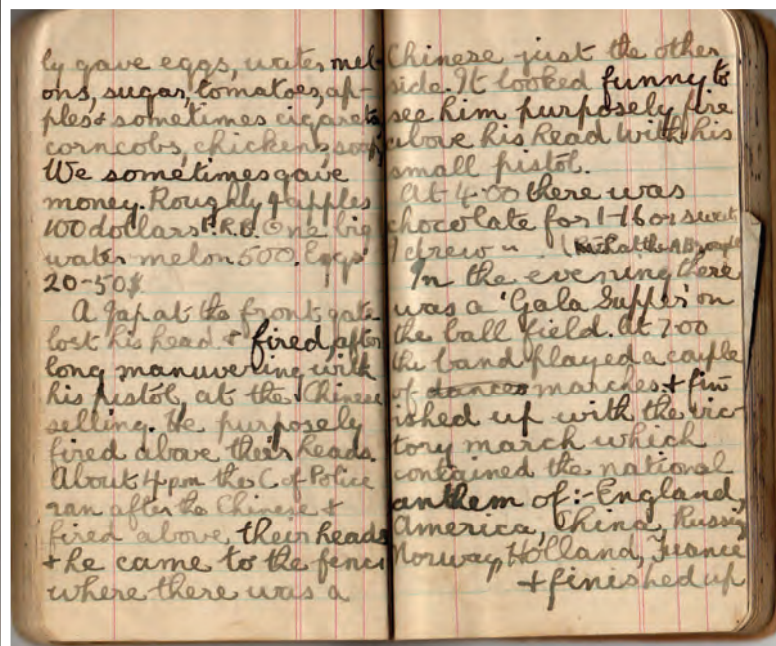 ly gave eggs, water mel-
ons, sugar, tomatoes, ap-
ples & sometimes cigarets
corncobs, chickens, soap,
We sometimes gave
money. Roughly 4 apples
100 dollars F.R.B. One big
water melon 500. Eggs
20-50$
A Jap at the front gate
lost his head & fired, after
long manuvering with
his pistol, at the Chinese
selling. He purposely
fired above their heads.
About 4 pm the C of Police
ran after the Chinese &
fired above their heads
& he came to the fence
where there was a
Chinese just the other
side. It looked funny to
see him purposely fire
above his head with his
small pistol.
At 4.00 there was
chocolate for 1-16 or sweets
I drew " .
In the evening there
was a 'Gala Supper' on
the ball field. At 7.00
the band played a couple
of dances marches & fin
ished up with the vic-
tory march which
contained the national
anthem of :- England,
America, China, Russia
Norway, Holland, France
& finished up